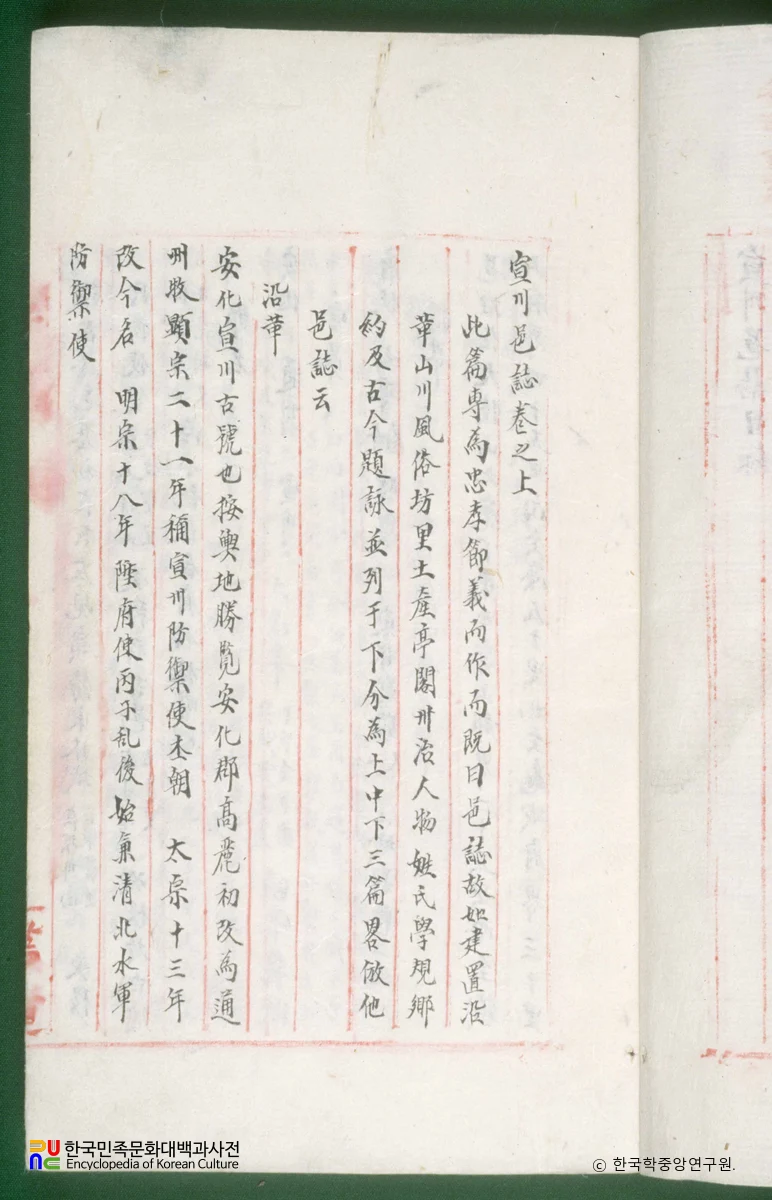 宣川邑誌卷之上
此篇專為忠孝節義而作而既曰邑誌故如建置沿
革山川風俗坊里土産亭閣州治人物姓氏學規鄉
約及古今題詠並列于下分為上中下三篇畧倣他
邑誌云
沿革
安化宣川古號也按輿地勝覧安化郡高麗初改為通
州牧顯宗二十一年稱宣州防禦使本朝 太宗十三年
改今名 明宗十八年陞府使丙子乱後始兼清北水軍
防禦使
한국민족문화대백과사전
Encyclopedia of Korean Culture
© 한국학중앙연구원.